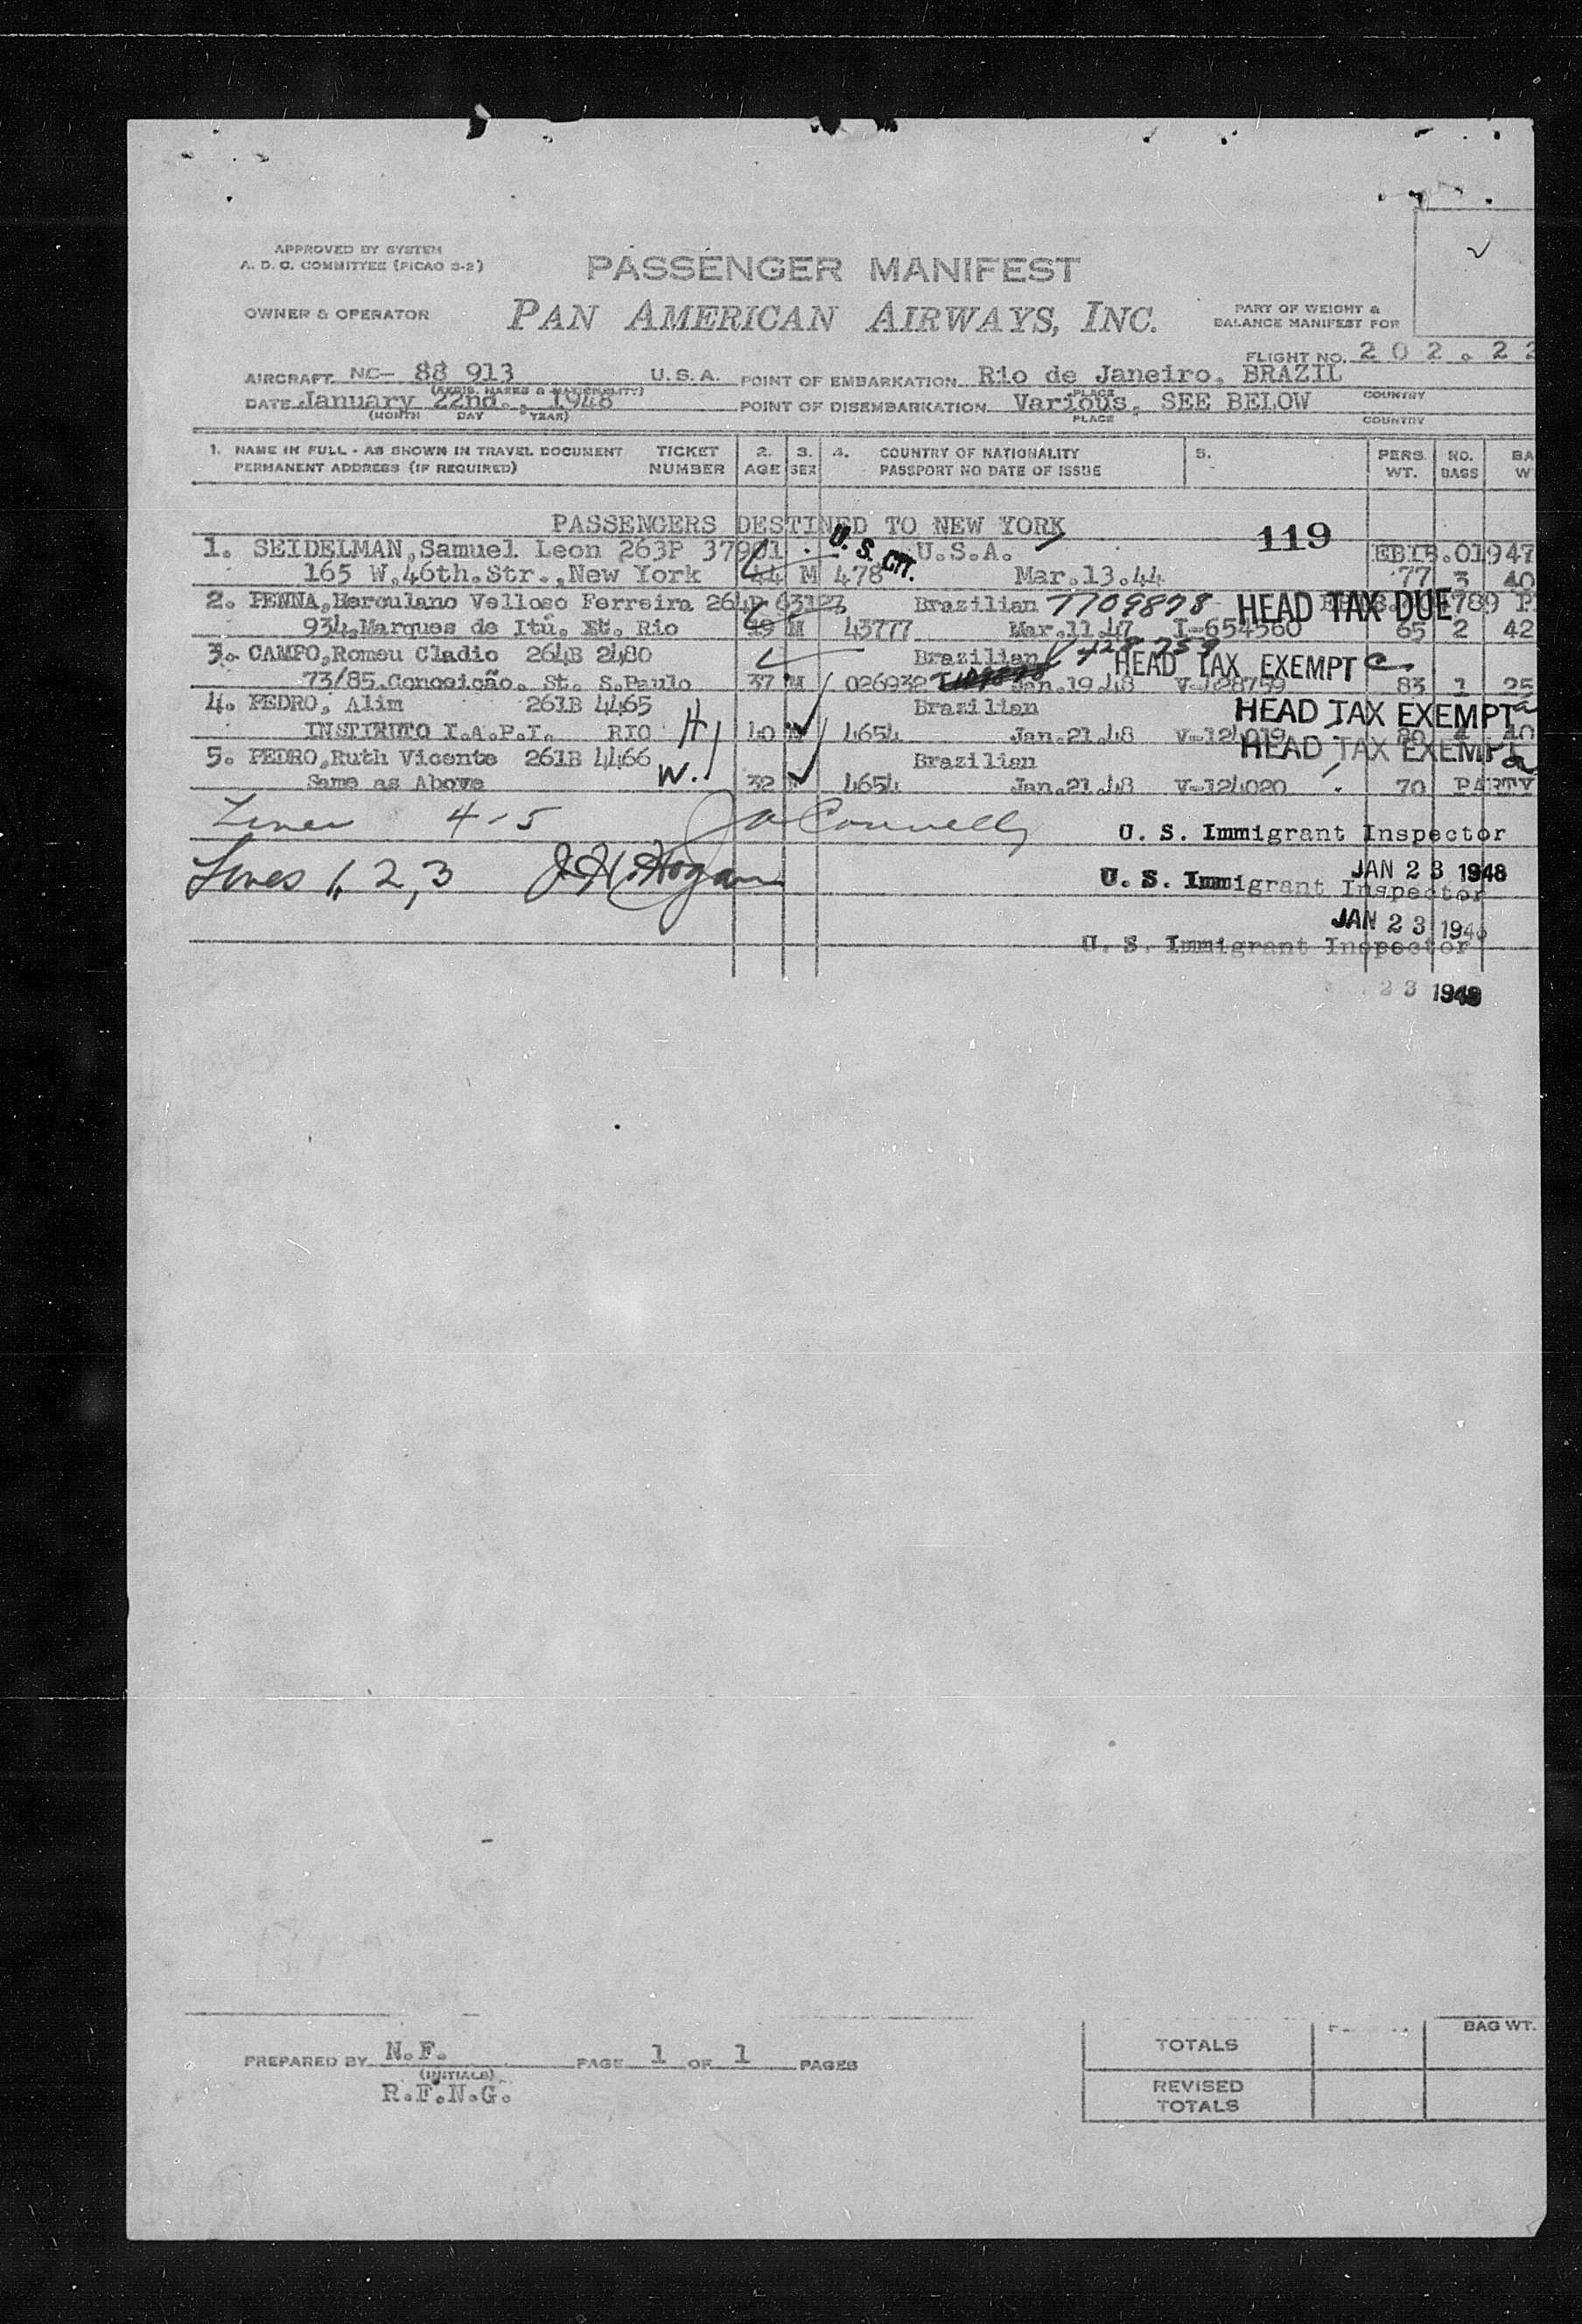 APPROVED BY SYSTEM
A. D. C. COMMITTEE (PICAO 3-2)
PASSENGER MANIFEST
OWNER & OPERATOR
PAN AMERICAN AIRWAYS, INC.
PART OF WEIGHT &
BALANCE MANIFEST FOR
FLIGHT NO. 202.22
AIRCRAFT NC- 88 913 U.S.A. POINT OF EMBARKATION Rio de Janeiro, BRAZIL
PLACE COUNTRY
DATE January 22nd., 1948 POINT OF DISEMBARKATION Various, SEE BELOW
(MONTH DAY YEAR) PLACE COUNTRY
1. NAME IN FULL - AS SHOWN IN TRAVEL DOCUMENT TICKET 2. 3. 4. COUNTRY OF NATIONALITY 5. PERS. NO. BA
PERMANENT ADDRESS (IF REQUIRED) NUMBER AGE SEX PASSPORT NO DATE OF ISSUE WT. BAGS W
PASSENGERS DESTINED TO NEW YORK
119
1. SEIDELMAN, Samuel Leon 263P 37901 U.S. CIT. U.S.A. EBIB.01947
165 W.46th.Str., New York 44 M 478 Mar.13.44 77 3 40
2. PENNA, Herculano Velloso Ferreira 264P 63127 Brazilian T709878 HEAD TAX DUE 789 P
934.Marques de Itú. St. Rio 49 M 43777 Mar.11.47 I-654560 65 2 42
3. CAMPO, Romeu Cladio 264B 2480 Brazilian V 428 759 HEAD TAX EXEMPT c
73/85.Conceição. St. S.Paulo 37 M 026932 Jan.19.48 V-428759 83 1 25
4. PEDRO, Alim 261B 4465 Brazilian HEAD TAX EXEMPT a
INSTITUTO I.A.P.I. RIO H 40 M 4654 Jan.21.48 V-124019 80 4 40
5. PEDRO, Ruth Vicente 261B 4466 Brazilian HEAD TAX EXEMPT a
Same as Above W. 32 4654 Jan.21.48 V-124020 70 PARTY
Lines 4-5 JA Connelly U. S. Immigrant Inspector
JAN 23 1948
Lines 1, 2, 3 J.H. Hogan U. S. Immigrant Inspector
JAN 23 1948
U. S. Immigrant Inspector
23 1948
BAG WT.
PREPARED BY N.F. PAGE 1 OF 1 PAGES TOTALS
(INITIALS)
R.F.N.G. REVISED
TOTALS